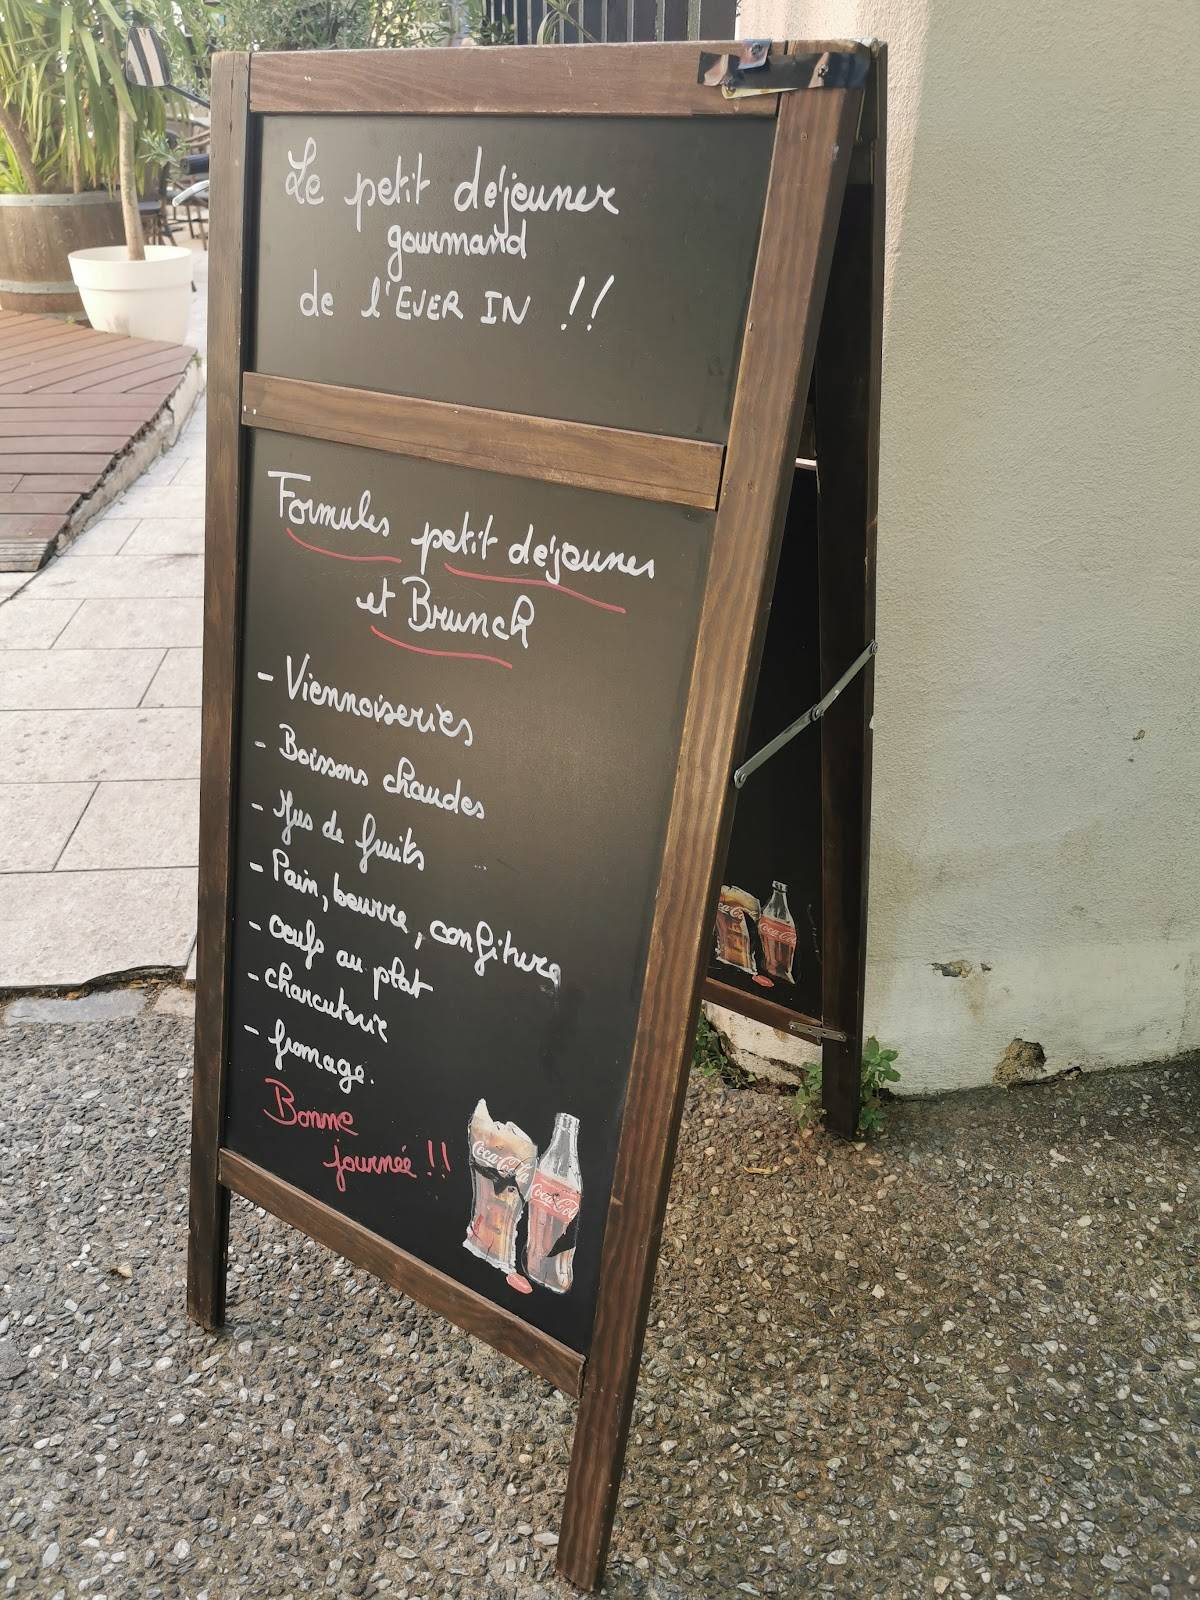 Le petit déjeuner
gourmand
de l'EVER IN !!
Formules petit déjeuner
et Brunch
- Viennoiseries
- Boissons chaudes
- Jus de fruits
- Pain, beurre, confiture
- oeufs au plat
- charcuterie
- fromage.
Bonne
journée !!
Coca-Cola
Coca-Cola
Coca-Cola